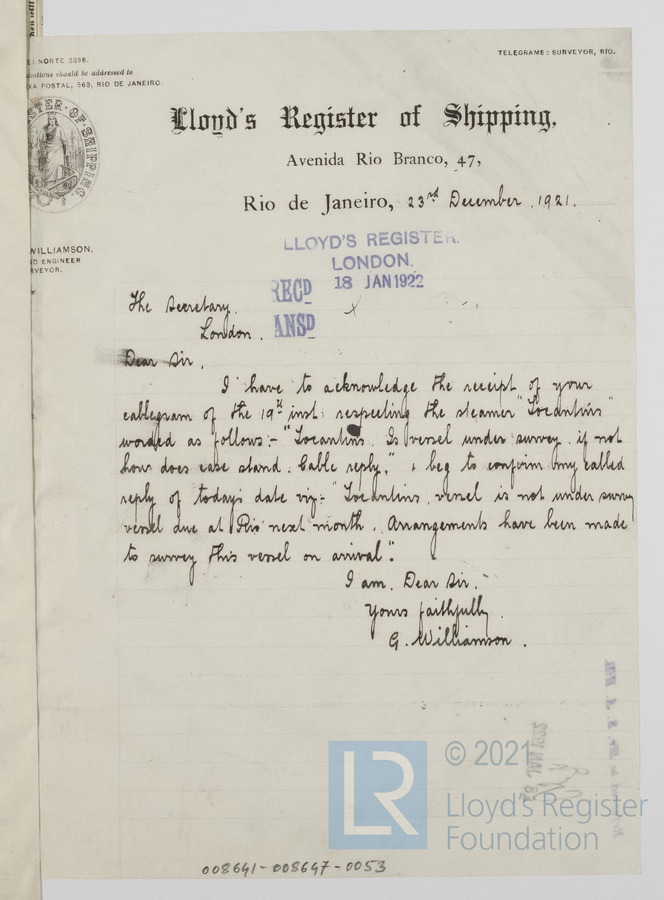 TELEGRAMS: SURVEYOR, RIO.
: NORTE 3398.
ications should be addressed to
XA POSTAL, 563, RIO DE JANEIRO.
Lloyd's Register of Shipping,
Avenida Rio Branco, 47,
Rio de Janeiro, 23rd December 1921.
STER·OF·SHIPPING
WILLIAMSON.
D ENGINEER
RVEYOR.
LLOYD'S REGISTER.
LONDON.
RECD 18 JAN 1922
ANSD
The Secretary.
London.
Dear Sir,
I have to acknowledge the receipt of your
cablegram of the 19th inst: respecting the steamer "Tocantins"
worded as follows:- "Tocantins. Is vessel under survey. if not
how does case stand. Cable reply," & beg to confirm my cabled
reply of todays date viz:- "Tocantins. vessel is not under survey
vessel due at Rio next month. Arrangements have been made
to survey this vessel on arrival".
I am, Dear Sir.
Yours faithfully.
G. Williamson.
© 2021
LR
Lloyd's Register
Foundation
008641-008647-0053